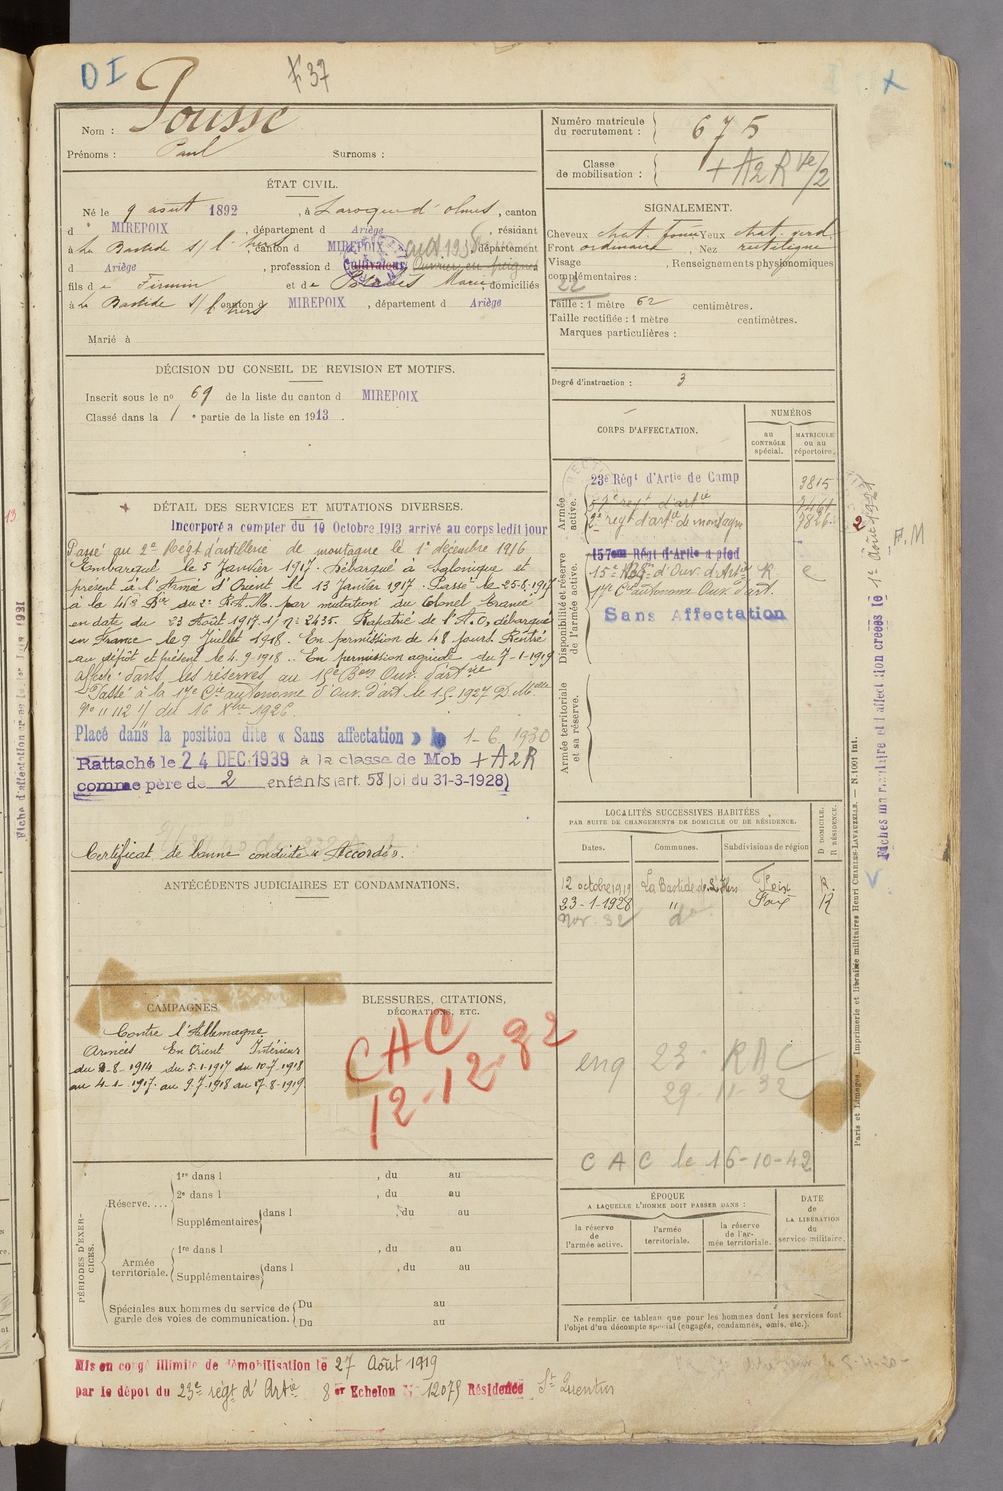 DI
F 37
X
Nom : Pousse
Prénoms : Paul Surnoms :
ÉTAT CIVIL.
Né le 9 août 1892, à Laroque d'olmes, canton
d MIREPOIX, département d Ariège, résidant
à La Bastide s/ l'hers, canton d MIREPOIX département
d Ariège, profession d Cultivateur Ouvrier en peignes
fils de Firmin et de Marie, domiciliés
à La Bastide s/ l'hers canton d MIREPOIX, département d Ariège
Marié à
DÉCISION DU CONSEIL DE REVISION ET MOTIFS.
Inscrit sous le no 69 de la liste du canton d MIREPOIX
Classé dans la 1e partie de la liste en 1913.
DÉTAIL DES SERVICES ET MUTATIONS DIVERSES.
Incorporé a compter du 10 Octobre 1913 arrivé au corps ledit jour
Passé au 2e Régt d'artillerie de montagne le 1er décembre 1916
Embarqué le 5 Janvier 1917. Débarqué à Salonique et
présent à l'Armée d'Orient le 13 Janvier 1917. Passé le 25-8-1917
à la 41e Bie du 2e R.A.M. par mutation du Colonel
en date du 23 Août 1917 s/ no 2435. Rapatrié de l'A.O, débarqué
en France le 9 Juillet 1918. En permission de 48 jours. Rentré
au dépôt et présent le 4.9.1918. En permission agricole du 7-1-1919
Affecté dans les réserves au 15e Bon Ouv. d'artie
Passé à la 17e Cie autonome d'Ouv. d'art le 1.5.1927 D. Melle
No 11112 1/ du 16 Xbre 1926.
Placé dans la position dite « Sans affectation » le 1-6 1930
Rattaché le 24 DEC. 1939 à la classe de Mob + A2R
comme père de 2 enfants (art. 58 loi du 31-3-1928)
Certificat de bonne conduite « Accordé ».
ANTÉCÉDENTS JUDICIAIRES ET CONDAMNATIONS.
CAMPAGNES
Contre l'Allemagne
Armées En Orient Intérieur
du 2-8-1914 du 5-1-1917 du 10-7-1918
au 4-1-1917. au 9-7-1918 au 17-8-1919
BLESSURES, CITATIONS,
DÉCORATIONS, ETC.
CAC
12-12-32
PÉRIODES D'EXERCICES.
Réserve....
1re dans l , du au
2e dans l , du au
Supplémentaires dans l , du au
Armée territoriale.
1re dans l , du au
Supplémentaires dans l , du au
Spéciales aux hommes du service de garde des voies de communication.
Du au
Du au
Mis en congé illimité de démobilisation le 27 Août 1919
par le dépot du 23e régt d'Artie 8er Echelon No 12075 Résidence St Quentin
Numéro matricule
du recrutement : 675
Classe
de mobilisation : + A2R Ve/2
SIGNALEMENT.
Cheveux chat. foncé Yeux chat. verd.
Front ordinaire, Nez rectiligne
Visage , Renseignements physionomiques
complémentaires :
22
Taille : 1 mètre 62 centimètres.
Taille rectifiée : 1 mètre centimètres.
Marques particulières :
Degré d'instruction : 3
CORPS D'AFFECTATION.
NUMÉROS
au CONTRÔLE spécial.
MATRICULE ou au répertoire.
Armée active.
23e Régt d'Artie de Camp 3815
regt d'artie
2e regt d'artie de montagne 7826
Disponibilité et réserve de l'armée active.
157eme Régt d'Artie a pied
15e Bon d'Ouv. d'Artie R
17e Cie autonome Ouv. d'art.
Sans Affectation
Armée territoriale et sa réserve.
LOCALITÉS SUCCESSIVES HABITÉES
PAR SUITE DE CHANGEMENTS DE DOMICILE OU DE RÉSIDENCE.
Dates. Communes. Subdivisions de région D DOMICILE. R RÉSIDENCE.
12 octobre 1919 La Bastide de l'Hers Foix R.
23-1-1928 " Foix R
Nov. 32 do
enq 23e RAC
29-11-32
CAC le 16-10-42
ÉPOQUE
A LAQUELLE L'HOMME DOIT PASSER DANS :
la réserve de l'armée active.
l'armée territoriale.
la réserve de l'armée territoriale.
DATE de LA LIBÉRATION du service militaire.
Ne remplir ce tableau que pour les hommes dont les services font
l'objet d'un décompte spécial (engagés, condamnés, omis, etc.).
Paris et Limoges. — Imprimerie et librairie militaires Henri CHARLES-LAVAUZELLE. — N. 1001 int.
Fiches matriculaire et d'affectation créées le 1er Août 1921
F.M